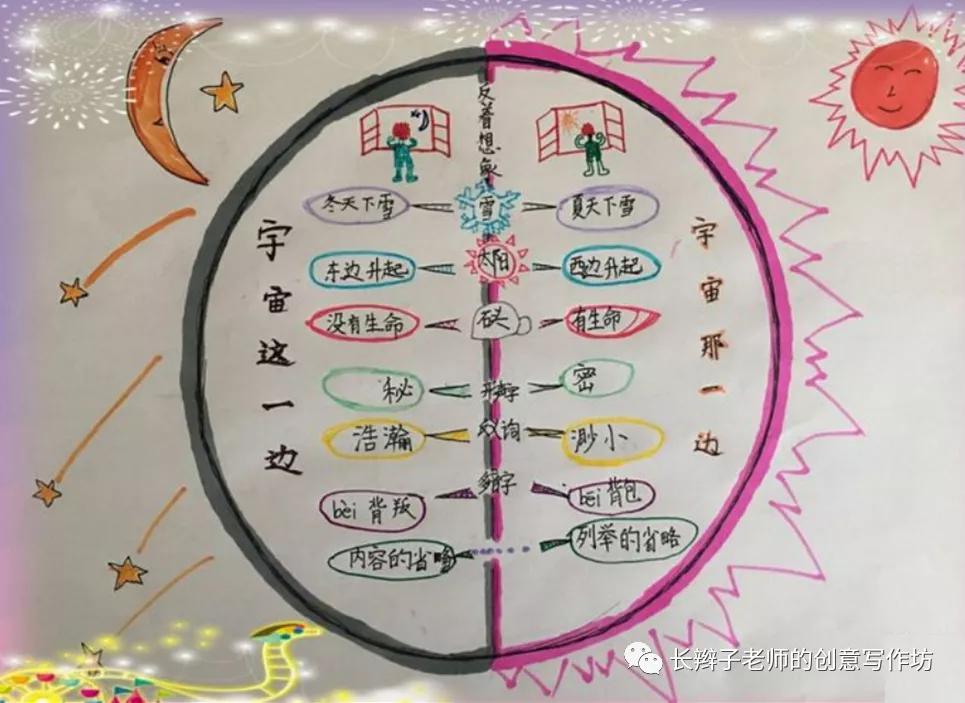 反着想象
宇宙这一边
宇宙那一边
冬天下雪 雪 夏天下雪
东边升起 太阳 西边升起
没有生命 石头 有生命
秘 形声字 密
浩瀚 双词 渺小
bèi 背叛 多音字 bēi 背包
内容的省略 列举的省略
长辫子老师的创意写作坊